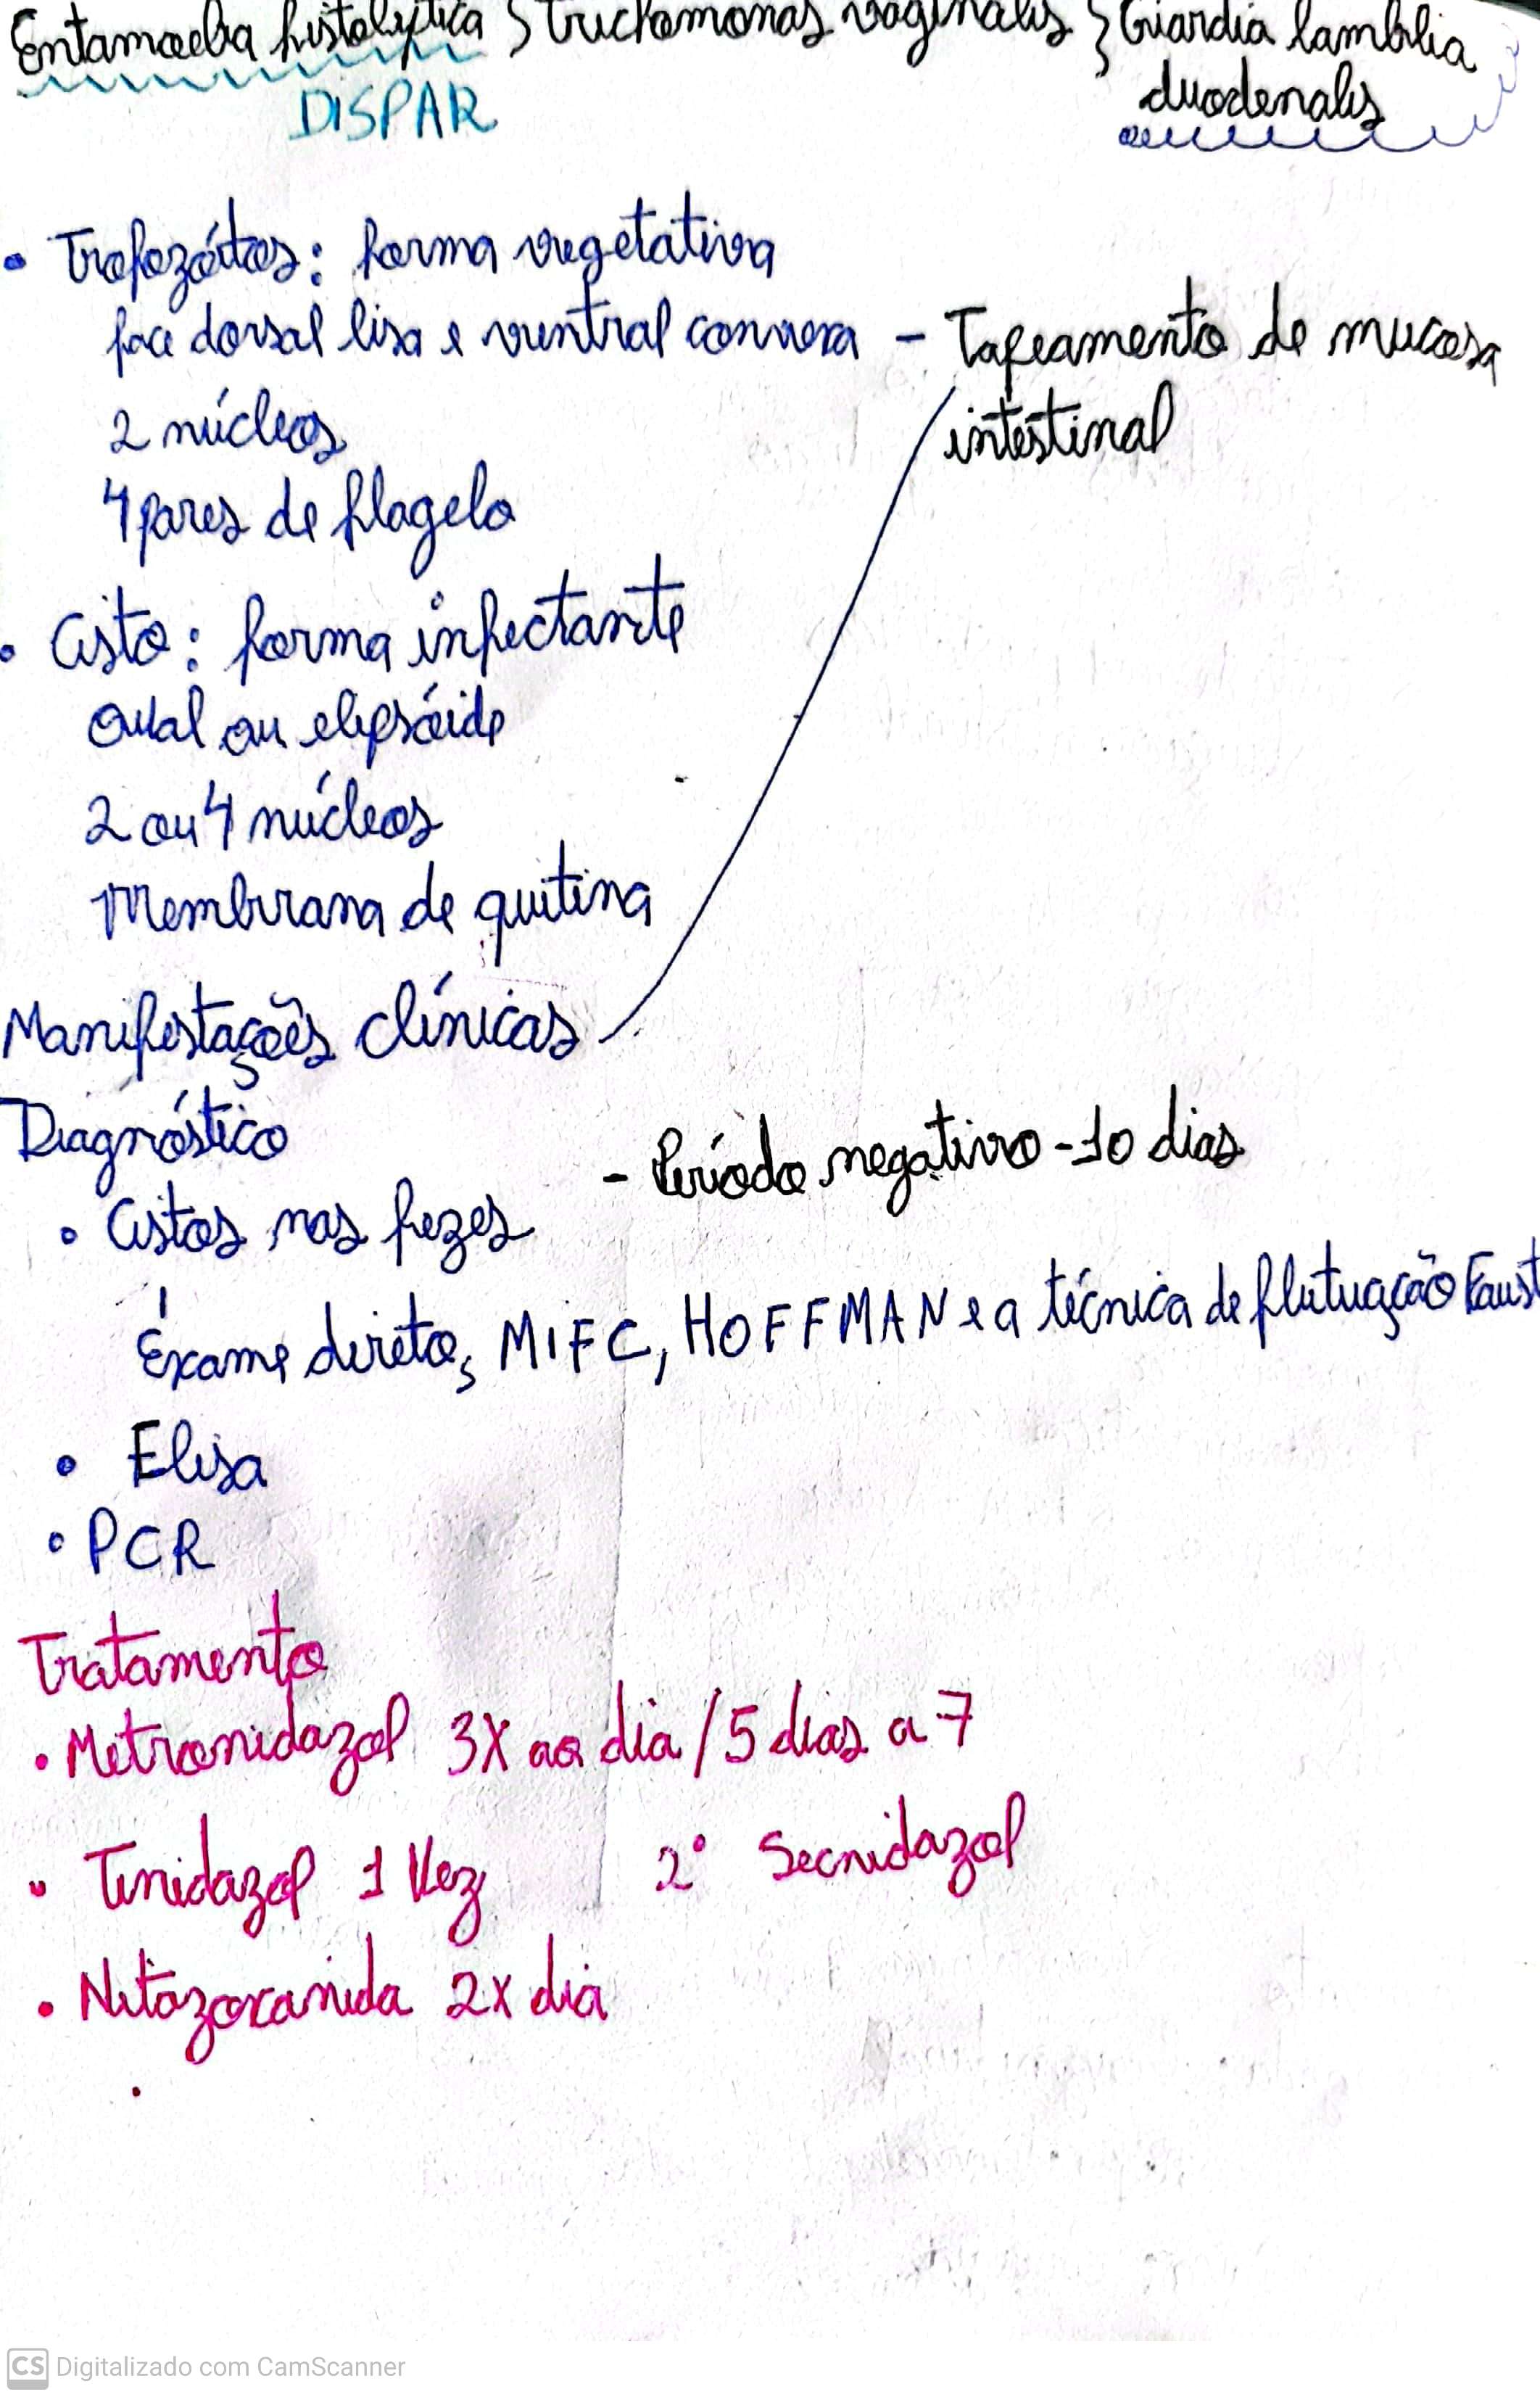 Entamoeba histolytica } Trichomonas vaginalis } Giardia lamblia
DISPAR
duodenalis
• Trofozóitos: forma vegetativa
face dorsal lisa e ventral convexa - Tapeamento de mucosa
intestinal
2 núcleos
4 pares de flagelo
• Cisto: forma infectante
Oval ou elipsóide
2 ou 4 núcleos
Membrana de quitina
Manifestações clínicas
Diagnóstico
- Período negativo - 10 dias
• Cistos nas fezes
Exame direto, MIFC, HOFFMAN e a técnica de flutuação Faust
• Elisa
• PCR
Tratamento
• Metronidazol 3X ao dia / 5 dias a 7
• Tinidazol 1 Vez 2° Secnidazol
• Nitazoxanida 2x dia
CS Digitalizado com CamScanner